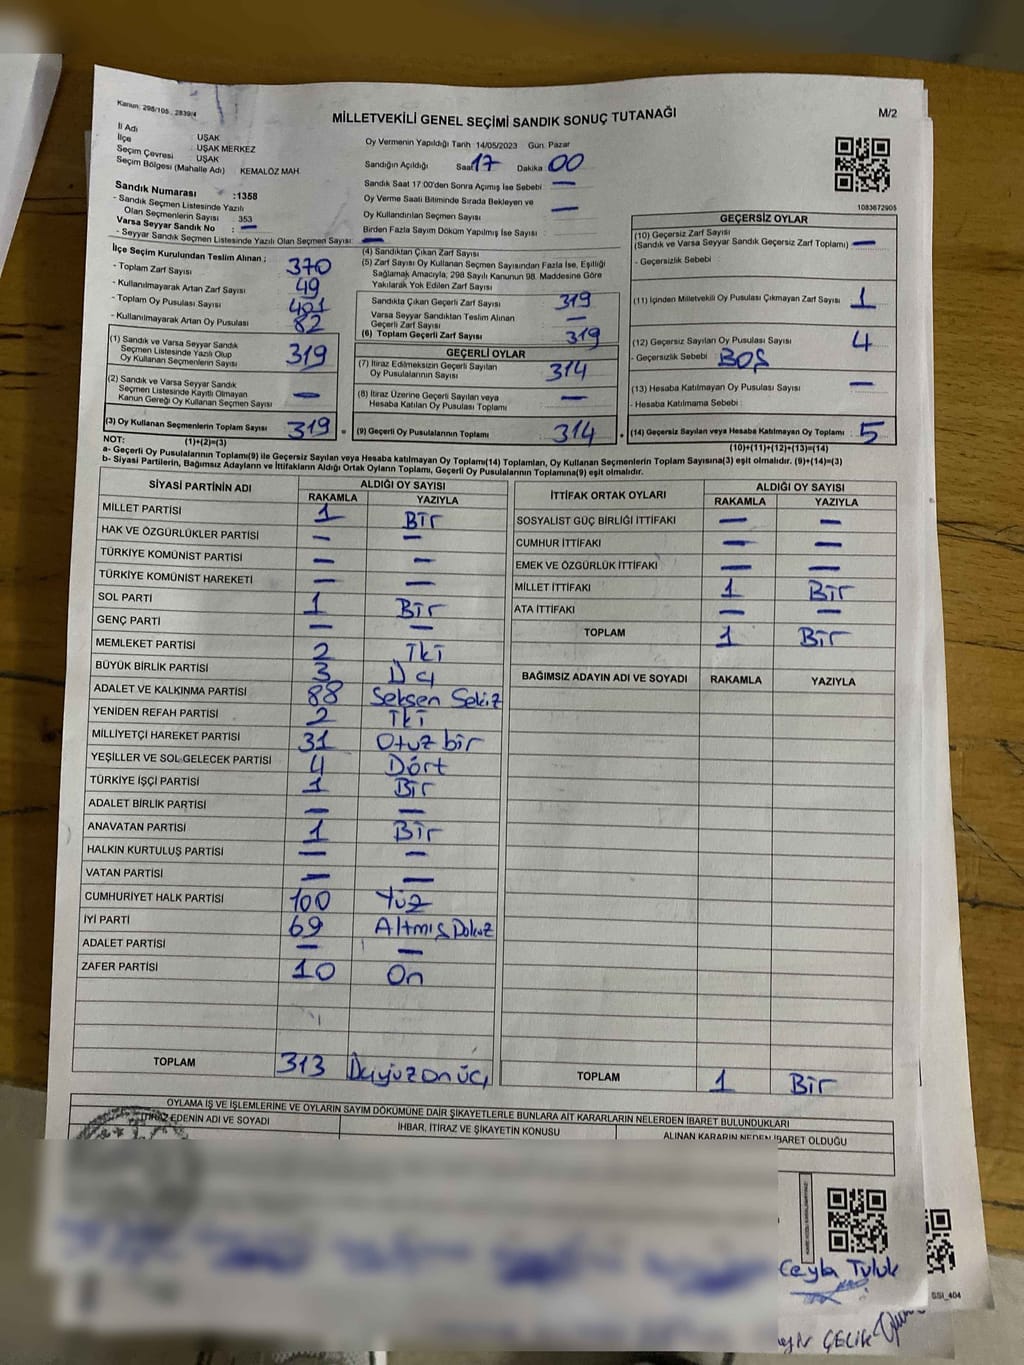 Kanun: 298/105 , 2839/4
MİLLETVEKİLİ GENEL SEÇİMİ SANDIK SONUÇ TUTANAĞI
M/2
İl Adı : UŞAK
İlçe : UŞAK MERKEZ
Seçim Çevresi : UŞAK
Seçim Bölgesi (Mahalle Adı) : KEMALÖZ MAH.
Oy Vermenin Yapıldığı Tarih 14/05/2023 Gün. Pazar
Sandığın Açıldığı Saat 17 Dakika 00
Sandık Saat 17:00'den Sonra Açımış İse Sebebi : —
Oy Verme Saati Bitiminde Sırada Bekleyen ve
Oy Kullandırılan Seçmen Sayısı —
Birden Fazla Sayım Döküm Yapılmış İse Sayısı :
1083672905
Sandık Numarası :1358
- Sandık Seçmen Listesinde Yazılı
Olan Seçmenlerin Sayısı : 353
Varsa Seyyar Sandık No : —
- Seyyar Sandık Seçmen Listesinde Yazılı Olan Seçmen Sayısı: —
İlçe Seçim Kurulundan Teslim Alınan ;
- Toplam Zarf Sayısı 370
- Kullanılmayarak Artan Zarf Sayısı 49
- Toplam Oy Pusulası Sayısı 401
- Kullanılmayarak Artan Oy Pusulası 82
(1) Sandık ve Varsa Seyyar Sandık
Seçmen Listesinde Yazılı Olup
Oy Kullanan Seçmenlerin Sayısı 319
(2) Sandık ve Varsa Seyyar Sandık
Seçmen Listesinde Kayıtlı Olmayan
Kanun Gereği Oy Kullanan Seçmen Sayısı —
(3) Oy Kullanan Seçmenlerin Toplam Sayısı 319
(1)+(2)=(3)
(4) Sandıktan Çıkan Zarf Sayısı
(5) Zarf Sayısı Oy Kullanan Seçmen Sayısından Fazla İse, Eşitliği
Sağlamak Amacıyla, 298 Sayılı Kanunun 98. Maddesine Göre
Yakılarak Yok Edilen Zarf Sayısı
Sandıkta Çıkan Geçerli Zarf Sayısı 319
Varsa Seyyar Sandıktan Teslim Alınan
Geçerli Zarf Sayısı —
(6) Toplam Geçerli Zarf Sayısı 319
GEÇERLİ OYLAR
(7) İtiraz Edilmeksizin Geçerli Sayılan
Oy Pusulalarının Sayısı 314
(8) İtiraz Üzerine Geçerli Sayılan veya
Hesaba Katılan Oy Pusulası Toplamı —
(9) Geçerli Oy Pusulalarının Toplamı 314
GEÇERSİZ OYLAR
(10) Geçersiz Zarf Sayısı
(Sandık ve Varsa Seyyar Sandık Geçersiz Zarf Toplamı) —
- Geçersizlik Sebebi :
(11) İçinden Milletvekili Oy Pusulası Çıkmayan Zarf Sayısı 1
(12) Geçersiz Sayılan Oy Pusulası Sayısı 4
- Geçersizlik Sebebi BOŞ
(13) Hesaba Katılmayan Oy Pusulası Sayısı —
- Hesaba Katılmama Sebebi :
(14) Geçersiz Sayılan veya Hesaba Katılmayan Oy Toplamı : 5
(10)+(11)+(12)+(13)=(14)
NOT:
a- Geçerli Oy Pusulalarının Toplamı(9) ile Geçersiz Sayılan veya Hesaba katılmayan Oy Toplamı(14) Toplamları, Oy Kullanan Seçmenlerin Toplam Sayısına(3) eşit olmalıdır. (9)+(14)=(3)
b- Siyasi Partilerin, Bağımsız Adayların ve İttifakların Aldığı Ortak Oyların Toplamı, Geçerli Oy Pusulalarının Toplamına(9) eşit olmalıdır.
SİYASİ PARTİNİN ADI ALDIĞI OY SAYISI
RAKAMLA YAZIYLA
MİLLET PARTİSİ 1 Bir
HAK VE ÖZGÜRLÜKLER PARTİSİ — —
TÜRKİYE KOMÜNİST PARTİSİ — —
TÜRKİYE KOMÜNİST HAREKETİ — —
SOL PARTİ 1 Bir
GENÇ PARTİ — —
MEMLEKET PARTİSİ 2 İki
BÜYÜK BİRLİK PARTİSİ 3 Üç
ADALET VE KALKINMA PARTİSİ 88 Seksen Sekiz
YENİDEN REFAH PARTİSİ 2 İki
MİLLİYETÇİ HAREKET PARTİSİ 31 Otuz bir
YEŞİLLER VE SOL GELECEK PARTİSİ 4 Dört
TÜRKİYE İŞÇİ PARTİSİ 1 Bir
ADALET BİRLİK PARTİSİ — —
ANAVATAN PARTİSİ 1 Bir
HALKIN KURTULUŞ PARTİSİ — —
VATAN PARTİSİ — —
CUMHURİYET HALK PARTİSİ 100 Yüz
İYİ PARTİ 69 Altmış Dokuz
ADALET PARTİSİ — —
ZAFER PARTİSİ 10 On
TOPLAM 313 Üçyüz on üç
İTTİFAK ORTAK OYLARI ALDIĞI OY SAYISI
RAKAMLA YAZIYLA
SOSYALIST GÜÇ BİRLİĞİ İTTİFAKI — —
CUMHUR İTTİFAKI — —
EMEK VE ÖZGÜRLÜK İTTİFAKI — —
MİLLET İTTİFAKI 1 Bir
ATA İTTİFAKI — —
TOPLAM 1 Bir
BAĞIMSIZ ADAYIN ADI VE SOYADI RAKAMLA YAZIYLA
TOPLAM 1 Bir
OYLAMA İŞ VE İŞLEMLERİNE VE OYLARIN SAYIM DÖKÜMÜNE DAİR ŞİKAYETLERLE BUNLARA AİT KARARLARIN NELERDEN İBARET BULUNDUKLARI
İTİRAZ EDENİN ADI VE SOYADI
İHBAR, İTİRAZ VE ŞİKAYETİN KONUSU
ALINAN KARARIN NEDEN İBARET OLDUĞU
Ceyla Tuluk
SSİ_404
ÇELİK